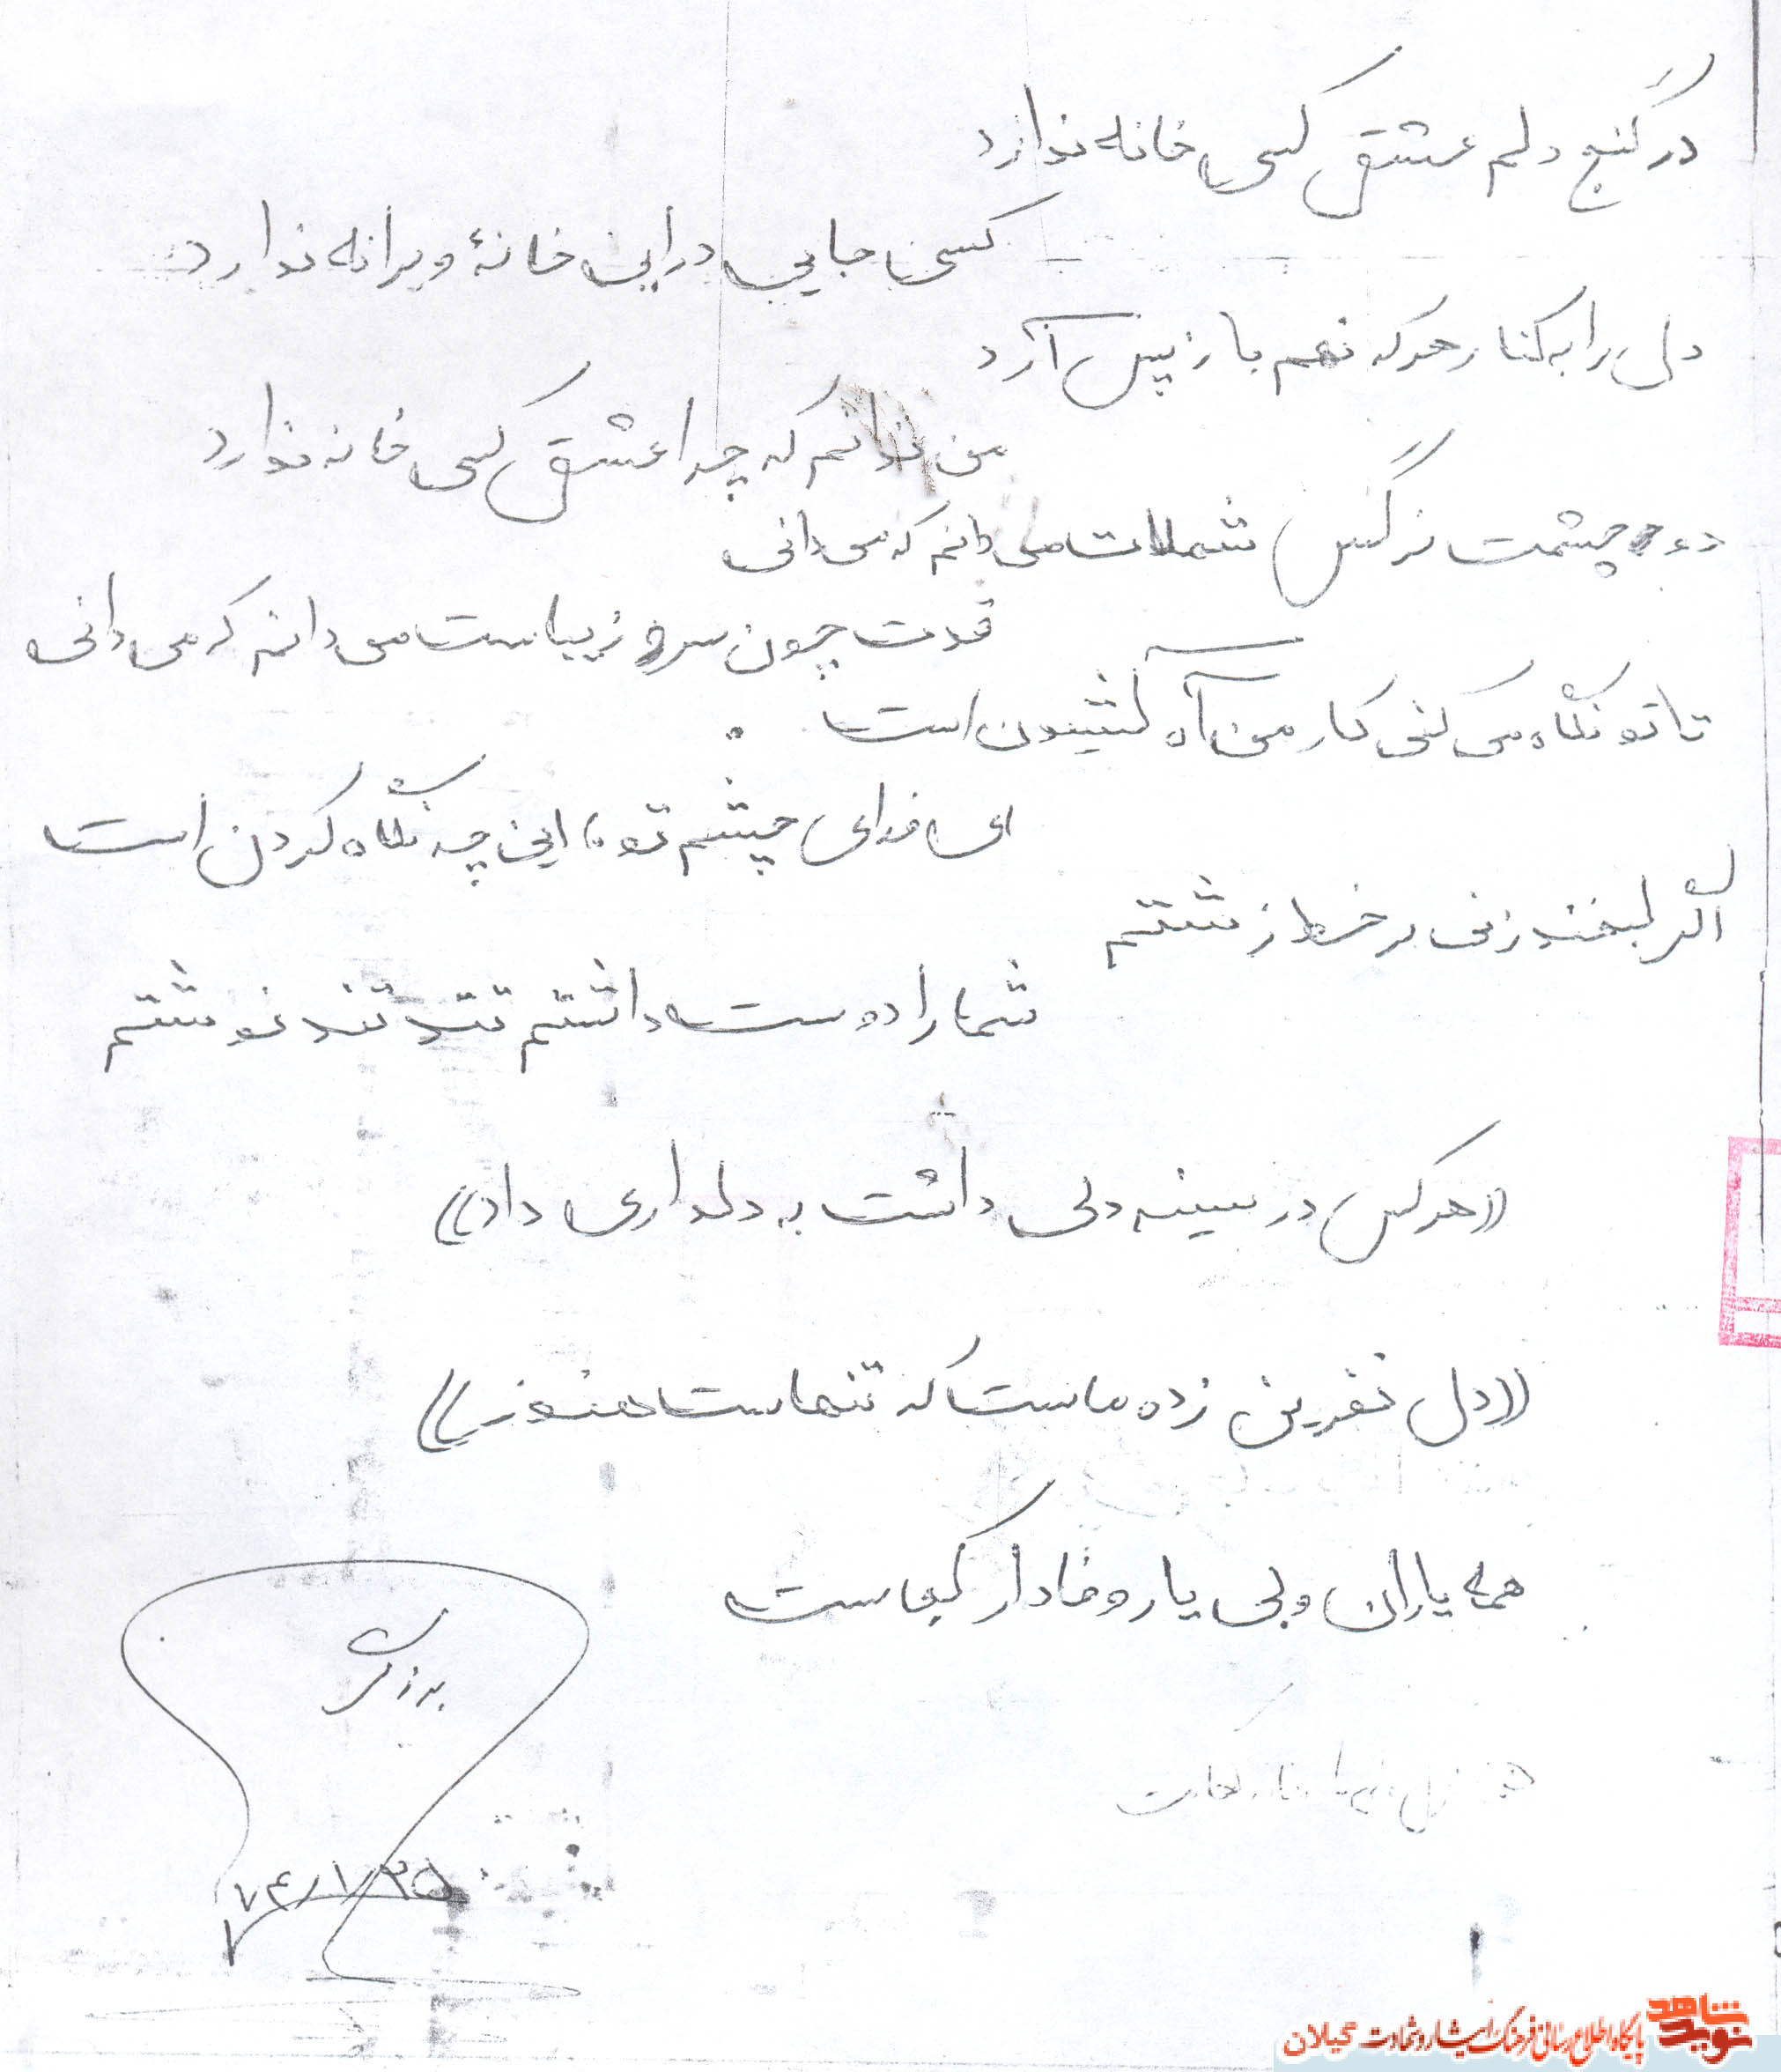 در کنج دلم عشق کسی خانه ندارد
کسی جایی در این خانهٔ ویرانه ندارد
دل را به کنار هر که نهم باز پس آرد
من ندانم که چرا عشق کسی خانه ندارد
دو چشمت نرگس شهلاست می دانم که می دانی
قدت چون سرو زیباست می دانم که می دانی
تا تو نگاه می کنی کار من آه کشیدن است
ای فدای چشم تو، این چه نگاه کردن است
اگر لبخند زنی بر خط زشتم
شما را دوست داشتم تند تند نوشتم
((هر کس در سینه دلی داشت به دلداری داد))
((دل نفرین زده ماست که تنهاست هنوز))
همه یاران ولی یار وفادار کجاست
بزرگی
۷۴/۱/۲۵
نوید شاهد
پایگاه اطلاع رسانی فرهنگ ایثار و شهادت گیلان